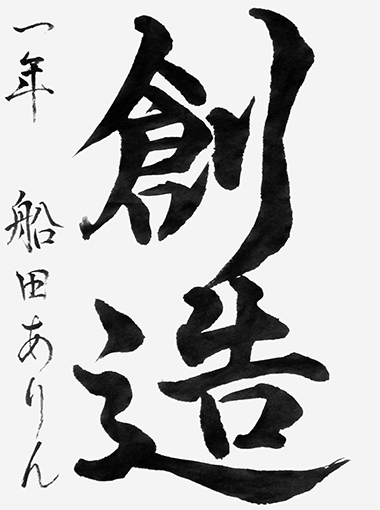 創造
一年 船田ありん